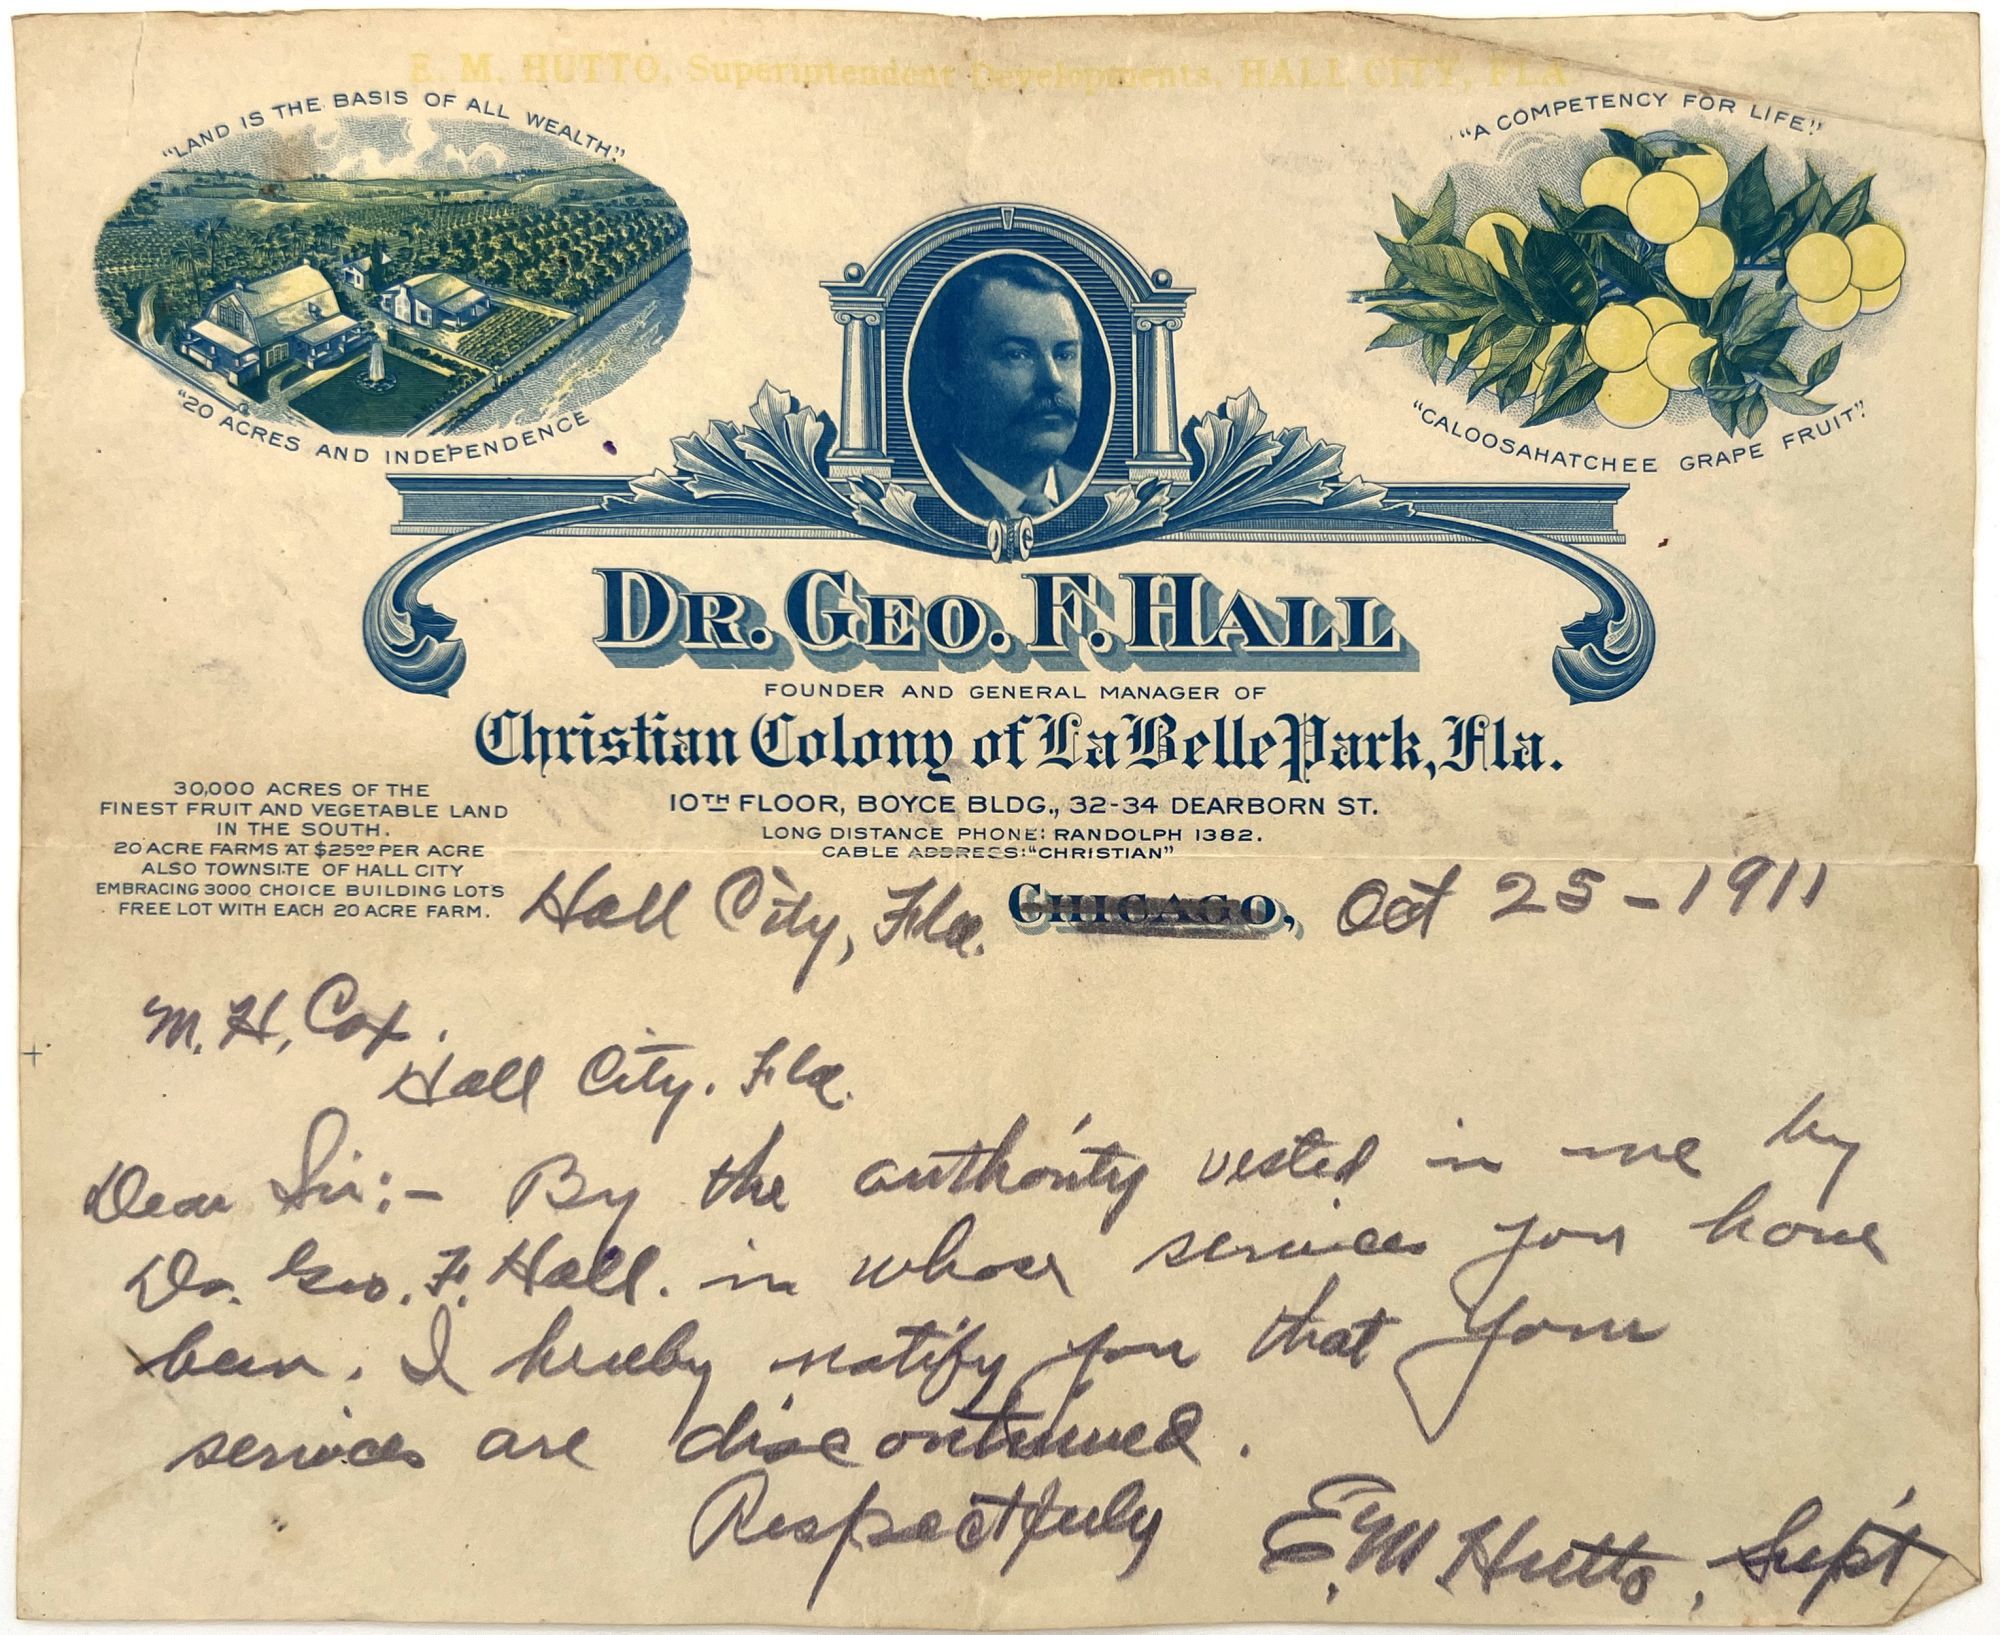 E. M. HUTTO, Superintendent Developments, HALL CITY, FLA
"LAND IS THE BASIS OF ALL WEALTH."
"20 ACRES AND INDEPENDENCE
"A COMPETENCY FOR LIFE."
"CALOOSAHATCHEE GRAPE FRUIT."
DR. GEO. F. HALL
FOUNDER AND GENERAL MANAGER OF
Christian Colony of La Belle Park, Fla.
10TH FLOOR, BOYCE BLDG., 32-34 DEARBORN ST.
LONG DISTANCE PHONE: RANDOLPH 1382.
CABLE ADDRESS: "CHRISTIAN"
30,000 ACRES OF THE
FINEST FRUIT AND VEGETABLE LAND
IN THE SOUTH.
20 ACRE FARMS AT $25.00 PER ACRE
ALSO TOWNSITE OF HALL CITY
EMBRACING 3000 CHOICE BUILDING LOTS
FREE LOT WITH EACH 20 ACRE FARM.
Hall City, Fla. CHICAGO, Oct 25-1911
M. H. Cox.
Hall City. Fla.
Dear Sir:- By the authority vested in me by
Dr. Geo. F. Hall. in whose services you have
been. I hereby notify you that your
services are discontinued.
Respectfuly
E.M Hutto, Sup't